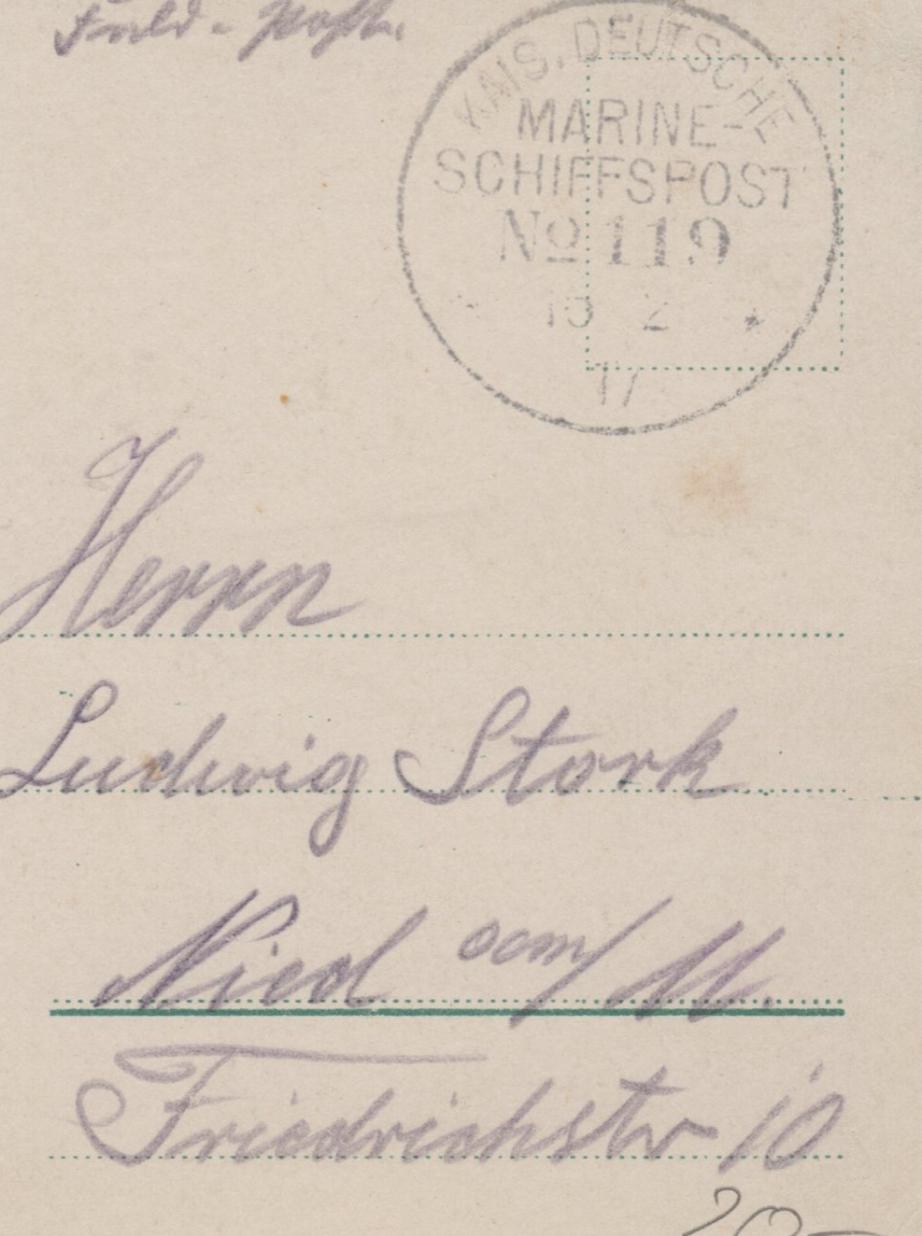 Feld-Post.
KAIS. DEUTSCHE
MARINE-
SCHIFFSPOST
No 119
2
17
Herrn
Ludwig Stork
Nied am/M.
Friedrichstr 10
20